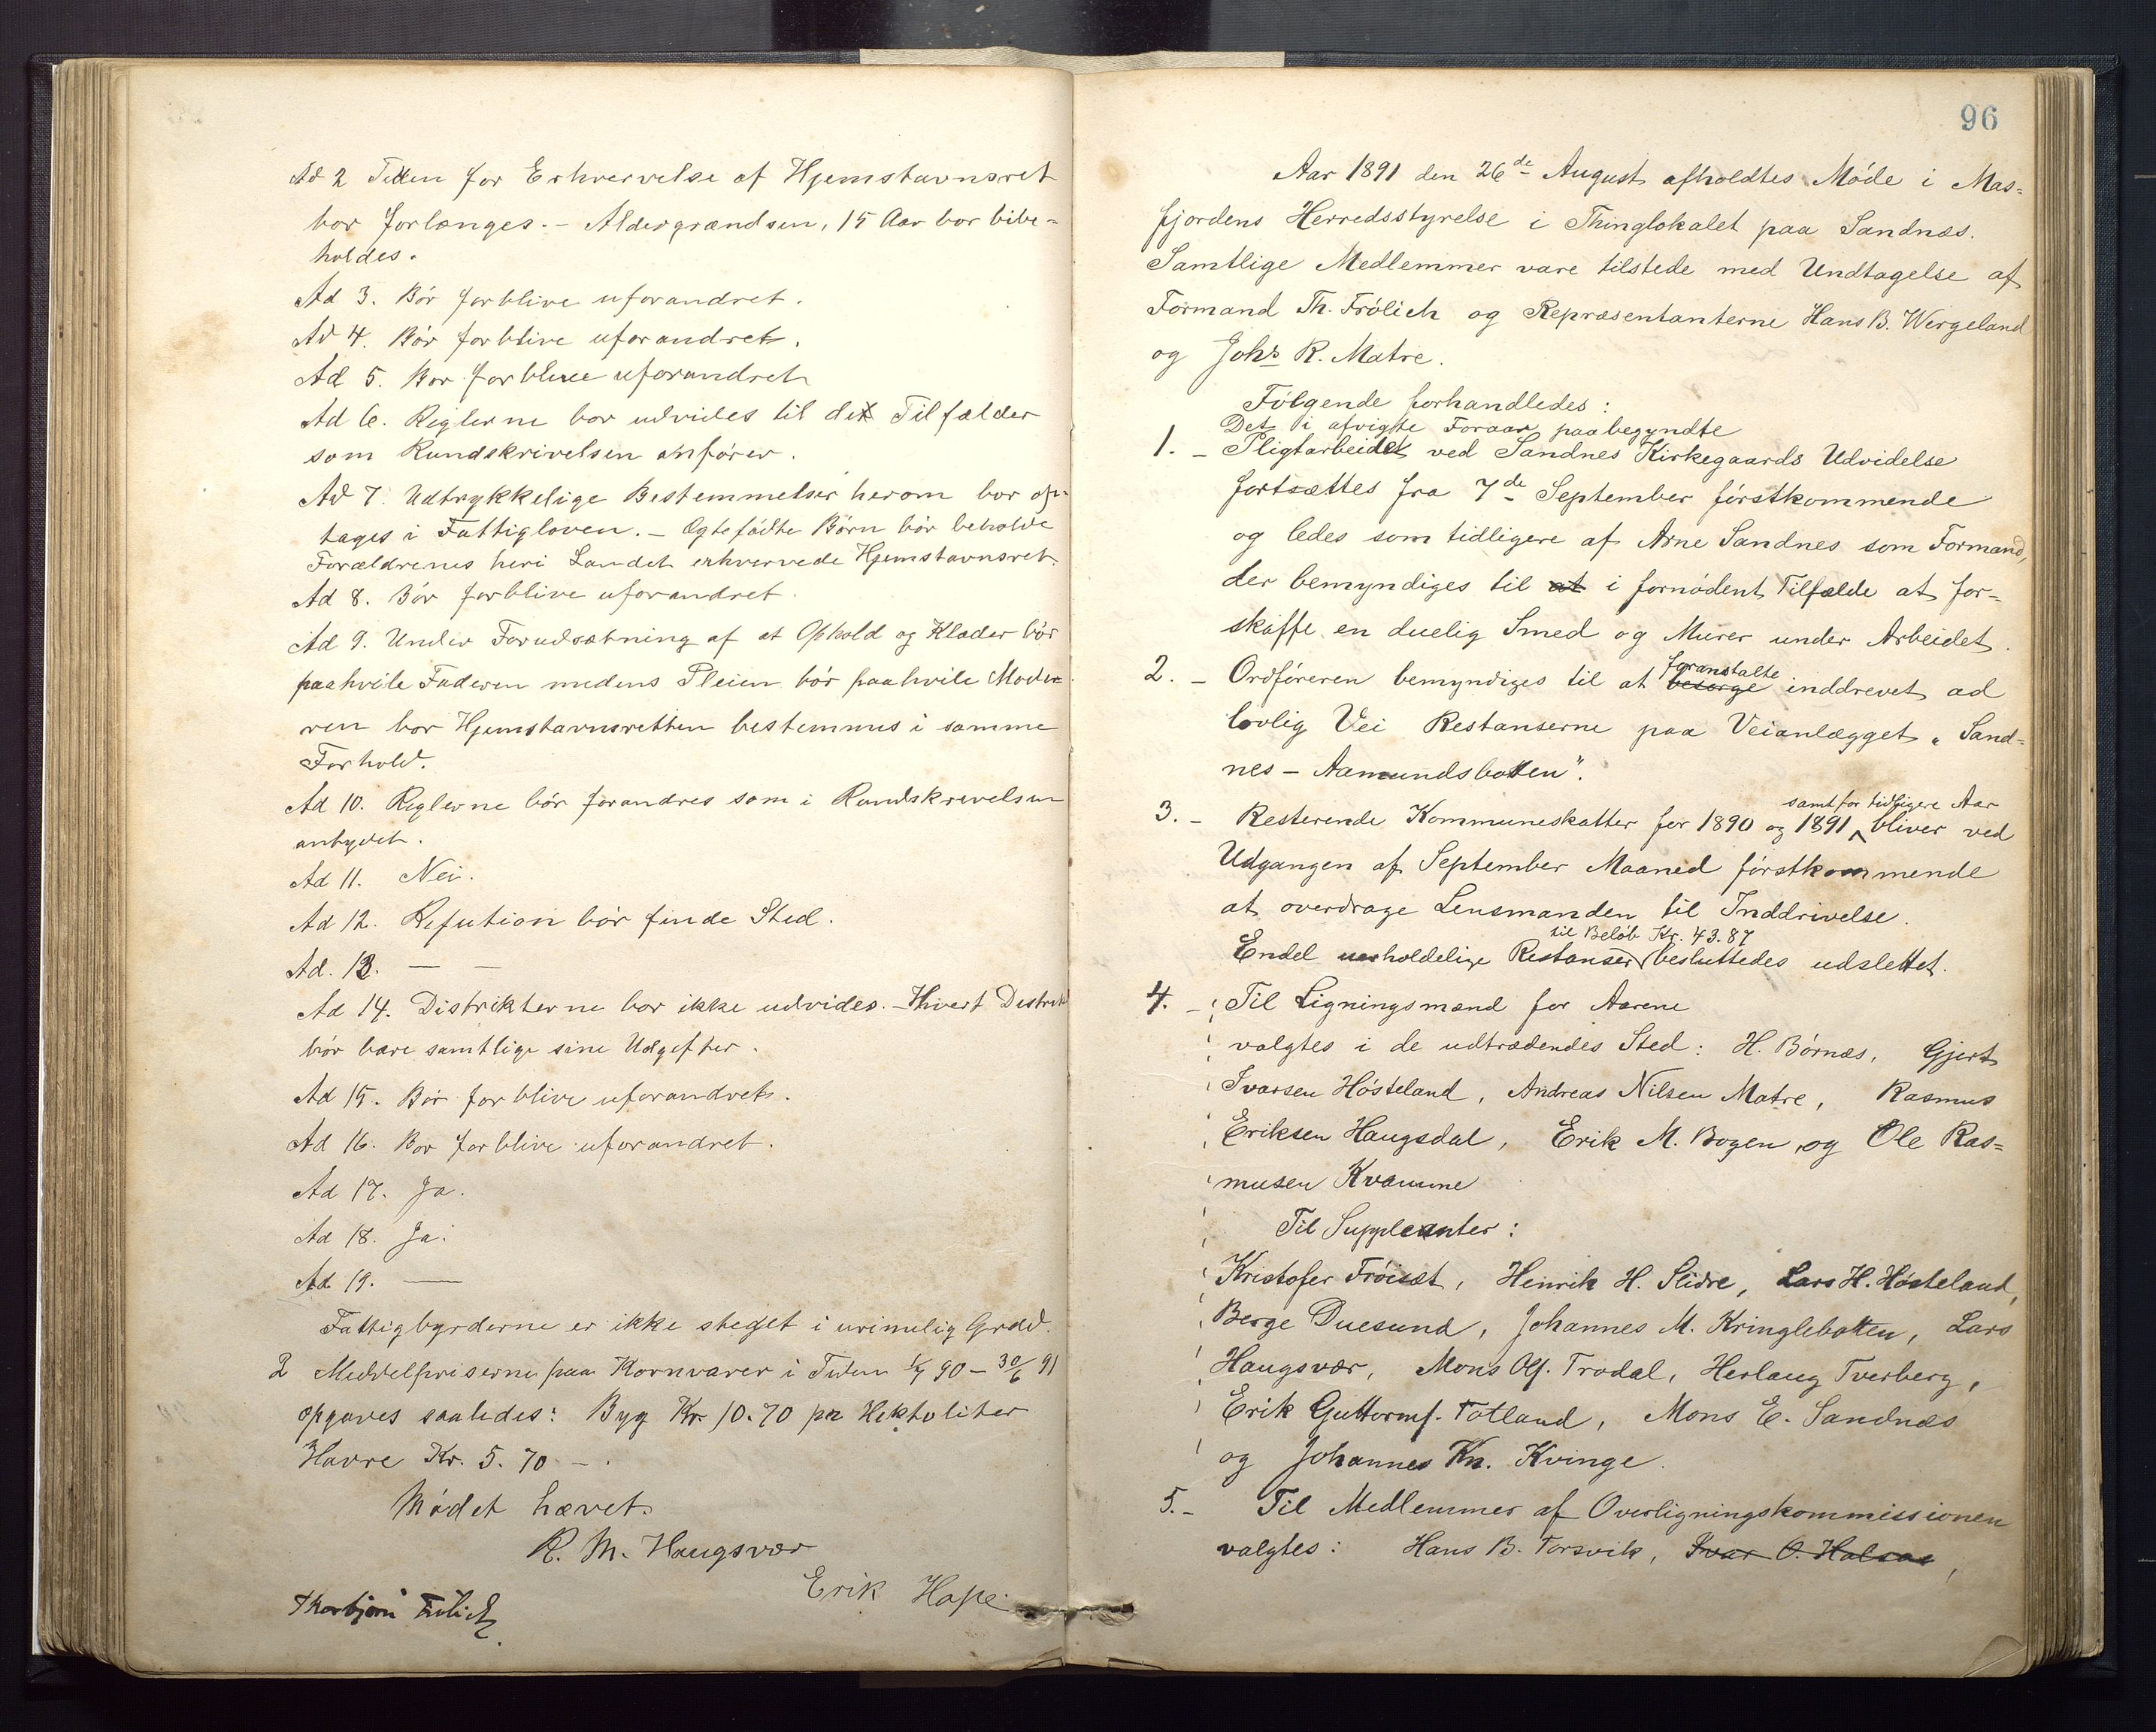 Ad 2 Tiden for Erhvervelse af Hjemstavnsret
bør forlænges. - Aldersgrændsen, 15 Aar bør bibe-
holdes.
Ad 3. Bør forblive uforandret.
Ad 4. Bør forblive uforandret.
Ad 5. Bør forblive uforandret
Ad 6. Reglerne bør udvides til de Tilfælder
som Rundskrivelsen anfører.
Ad 7. Udtrykkelige Bestemmelser herom bør op-
tages i Fattigloven. - Ægtefødte Børn bør beholde
Forældrenes heri Landet erhvervede Hjemstavnsret.
Ad 8. Bør forblive uforandret.
Ad 9. Under Forudsætning af at Ophold og Klæder bør
paahvile Faderen medens Pleien bør paahvile Mode-
ren bør Hjemstavnsretten bestemmes i samme
Forhold.
Ad 10. Reglerne bør forandres som i Rundskrivelsen
antydet.
Ad 11. Nei.
Ad 12. Refution bør finde Sted.
Ad. 13. — —
Ad 14. Distrikterne bør ikke udvides. - Hvert Distrikt
bør bære samtlige sine Udgifter.
Ad 15. Bør forblive uforandret.
Ad 16. Bør forblive uforandret.
Ad 17. Ja.
Ad 18. Ja.
Ad 19. —
Fattigbyrderne er ikke steget i urimelig Grad.
2 Middelpriserne paa Kornvarer i Tiden 1/7 90 - 30/6 91
opgaves saaledes: Byg Kr. 10.70 pr Hektoliter
Havre Kr. 5.70 - .
Mødet hævet.
R. M. Haugsvær
Erik Hope
Thorbjørn Frölich
96
Aar 1891 den 26de August afholdtes Møde i Mas-
fjordens Herredsstyrelse i Thinglokalet paa Sandnæs.
Samtlige Medlemmer vare tilstede med Undtagelse af
Formand Th. Frölich og Repræsentanterne Hans B. Wergeland
og Johs R. Matre.
Følgende forhandledes:
Det i afvigte Foraar paabegyndte
1. - Pligtarbeidet ved Sandnes Kirkegaards Udvidelse
fortsættes fra 7de September førstkommende
og ledes som tidligere af Arne Sandnes som Formand,
der bemyndiges til at i fornødent Tilfælde at for-
skaffe en duelig Smed og Murer under Arbeidet.
foranstalte
2. - Ordføreren bemyndiges til at besørge inddrevet ad
lovlig Vei Restanserne paa Veianlægget „Sand-
nes - Aamundsbotten".
samt for tidligere Aar
3. - Resterende Kommuneskatter for 1890 og 1891 bliver ved
Udgangen af September Maaned førstkommende
at overdrage Lensmanden til Inddrivelse.
til Beløb Kr. 43.87
Endel uerholdelige Restanser besluttedes udslettet.
4. - Til Ligningsmænd for Aarene
valgtes i de udtrædendes Sted: H. Børnæs, Gjert
Ivarsen Høsteland, Andreas Nilsen Matre, Rasmus
Eriksen Haugsdal, Erik M. Bogen, og Ole Ras-
musen Kvamme
Til Suppleanter:
Kristofer Frøiset, Henrik H. Slidre, Lars H. Høsteland,
Berge Duesund, Johannes M. Kringlebotten, Lars
Haugsvær, Mons Olf. Trodal, Herlaug Tverberg,
Erik Guttormf. Totland, Mons E. Sandnæs
og Johannes Kn. Kvinge.
5. - Til Medlemmer af Overligningskommissionen
valgtes: Hans B. Torsvik, Ivar O. Halsøe,